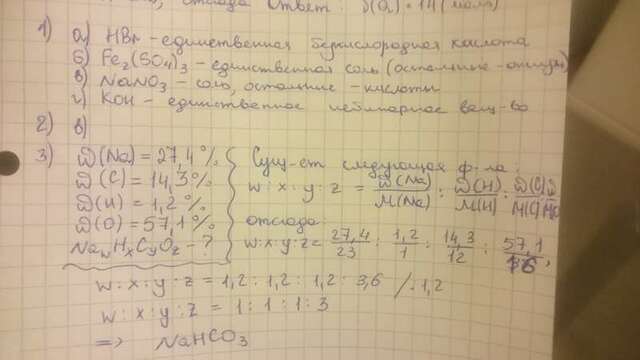 отсюда Ответ: 𝒟(O₂) = 14 (моль)
1) а) HBr - единственная бескислородная кислота
б) Fe₂(SO₄)₃ - единственная соль (остальные - оксиды)
в) NaNO₃ - соль, остальные - кислоты
г) KOH - единственное небинарное вещ-во
2) в)
3) ω(Na) = 27,4%
ω(C) = 14,3%
ω(H) = 1,2%
ω(O) = 57,1%
NawHxCyOz - ?
Сущ-ет следующая ф-ла:
w : x : y : z = ω(Na)/M(Na) : ω(H)/M(H) : ω(C)/M(C)
отсюда:
w:x:y:z = 27,4/23 : 1,2/1 : 14,3/12 : 57,1/16;
w : x : y : z = 1,2 : 1,2 : 1,2 : 3,6 /:1,2
w : x : y : z = 1 : 1 : 1 : 3
=> NaHCO₃